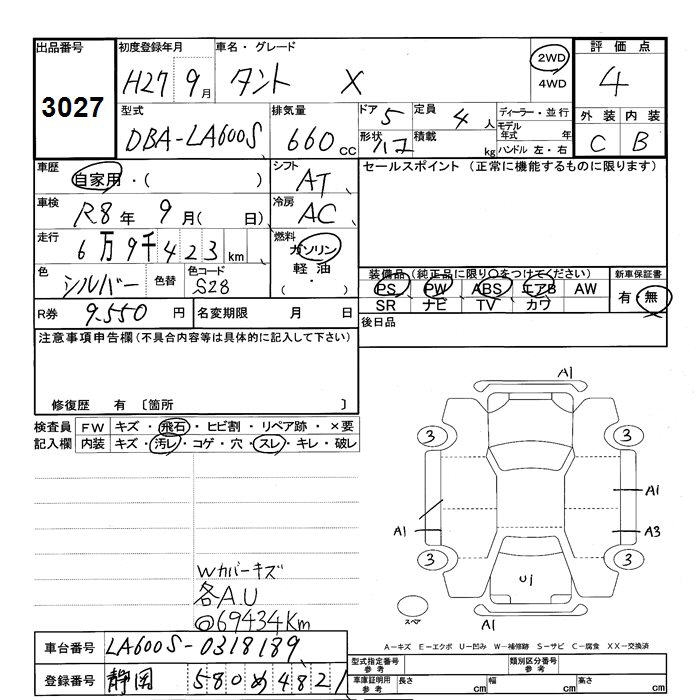 出品番号 初度登録年月 車名・グレード 2WD 評価点
3027 H27 9月 タント X 4WD 4
型式 排気量 ドア 5 定員 4人 ディーラー・並行 外装 内装
DBA-LA600S 660cc 形状 ハコ 積載 kg モデル年式 年 C B
ハンドル 左・右
車歴 自家用・( ) シフト AT セールスポイント (正常に機能するものに限ります)
車検 R8年 9月( 日) 冷房 AC
走行 6万9千423km 燃料 ガソリン
軽油
( ・ )
色 シルバー 色替 色コード S28 装備品(純正品に限り○をつけてください) 新車保証書
PS PW ABS エアB AW 有・無
SR ナビ TV カワ
R券 9.550円 名変期限 月 日 後日品
注意事項申告欄(不具合内容等は具体的に記入して下さい)
修復歴 有 〔箇所 〕
検査員 FW キズ・飛石・ヒビ割・リペア跡・×要
記入欄 内装 キズ・汚レ・コゲ・穴・スレ・キレ・破レ
A1
3 3
A1
A1 A3
3 3
U1
スペア
A1
Wカバーキズ
各A.U
@69434Km
A-キズ E-エクボ U-凹み W-補修跡 S-サビ C-腐食 XX-交換済
車台番号 LA600S-0318189 型式指定番号 参考 類別区分番号 参考
登録番号 静岡 580 め 4821 車庫証明用 参考 長さ cm 幅 cm 高さ cm